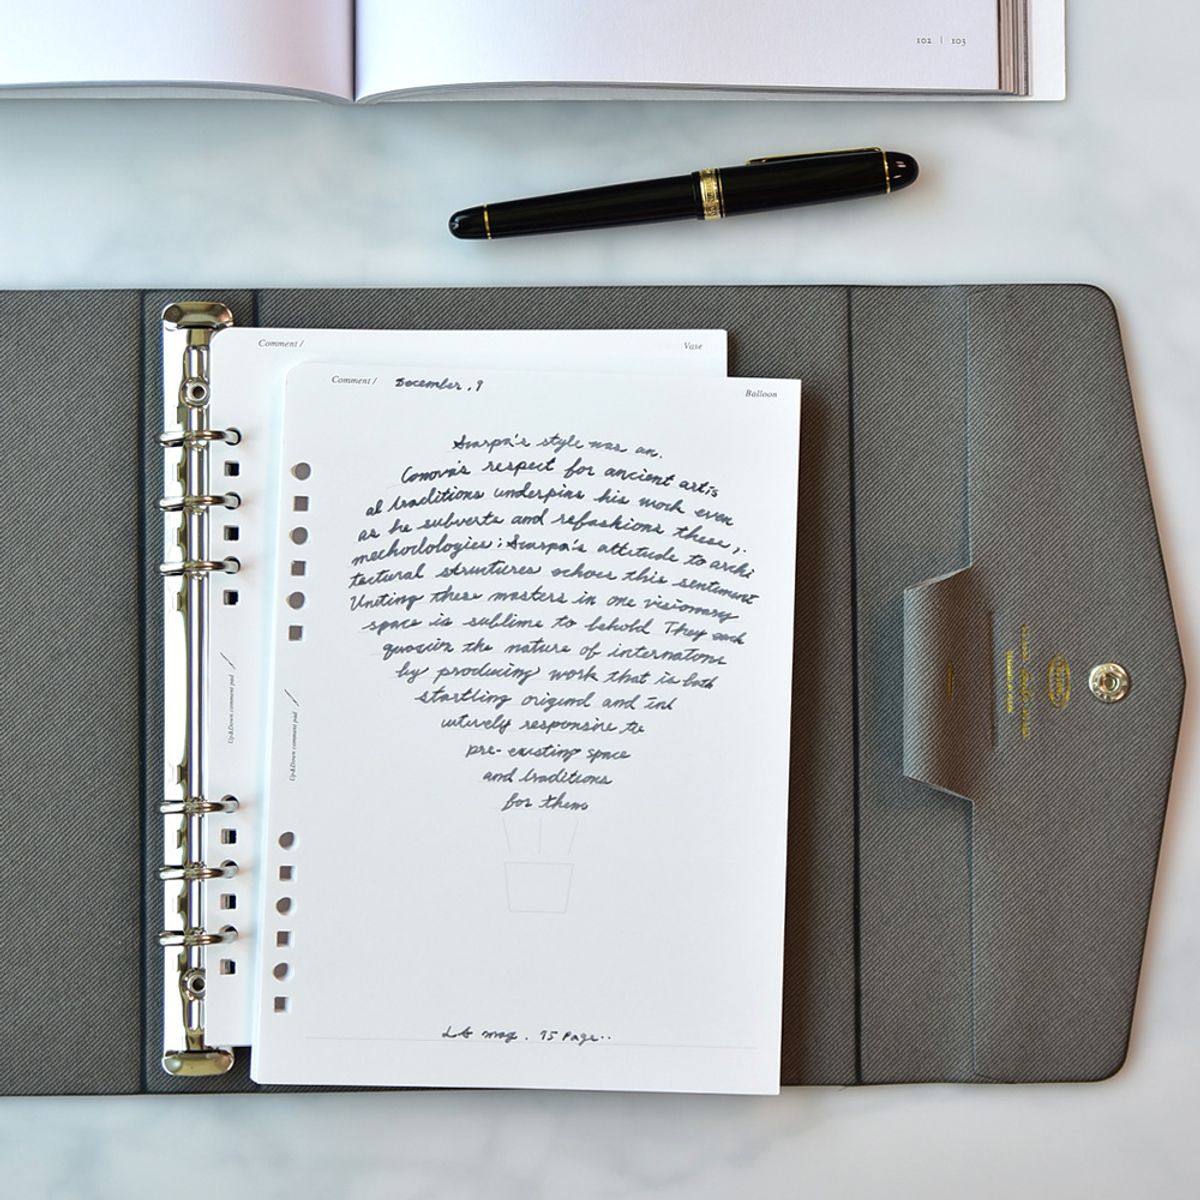 102 | 103
Comment /
Vase
Comment / December . 9
Balloon
Scarpa's style was an.
Canova's respect for ancient artis
al traditions underpins his work even
as he subverts and refashions these ;.
mechodologies ; Scarpa's attitude to archi
tectural structures echoes this sentiment
Uniting these masters in one visionary
space is sublime to behold They each
the nature of internatons
by producing work that is both
startling original and int
uitively responsive to
pre-existing space
and traditions
for them
mag . 75 Page..
Up&Down comment pad /
Up&Down comment pad /